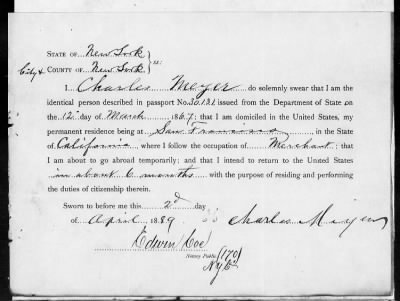 STATE OF New York
City & COUNTY OF New York } ss:
I Charles Meyer do solemnly swear that I am the
identical person described in passport No. 30,131 issued from the Department of State on
the 12" day of March 1867; that I am domiciled in the United States, my
permanent residence being at San Francisco in the State
of California where I follow the occupation of Merchant; that
I am about to go abroad temporarily; and that I intend to return to the United States
in about 6 months with the purpose of residing and performing
the duties of citizenship therein.
Sworn to before me this 2d day
of April 1889 Charles Meyer
Edwin Coe
Notary Public (170)
N.Y. Co